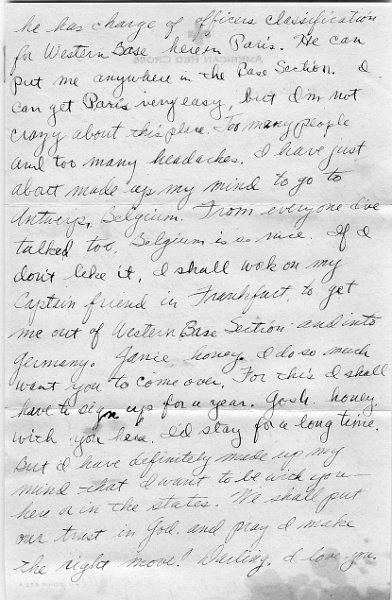 he has charge of officers classification
for Western Base here in Paris. He can
put me anywhere in the Base Section. I
can get Paris very easy, but I'm not
crazy about this place. Too many people
and too many headaches. I have just
about made up my mind to go to
Antwerp, Belgium. From everyone I've
talked too, Belgium is so nice. If I
don't like it, I shall wok on my
Captain friend in Frankfurt, to get
me out of Western Base Section and into
Germany. Janie honey, I do so much
want you to come over, For this I shall
have to sign up for a year. Gosh honey
with you here, I'd stay for a long time.
But I have definitely made up my
mind that I want to be with you
here or in the states. We shall put
our trust in God, and pray I make
the right move! Darling, I love you.
AMERICAN RED CROSS